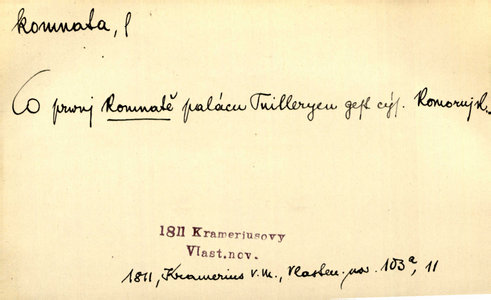 komnata, f
O prwnj Komnatě palácu Tuilleryen gest cýs. Komornjk.
1811 Krameriusovy
Vlast.nov.
1811, Kramerius V. M., Vlasten. nov. 103a, 11